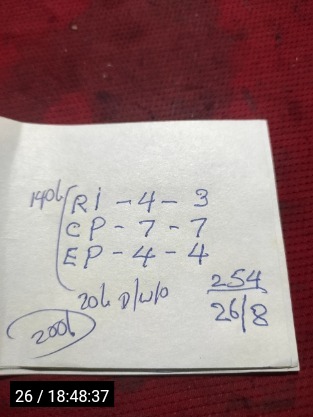 140L RI - 4 - 3
CP - 7 - 7
EP - 4 - 4
20L D/W/O
254
26/8
200L
26 / 18:48:37